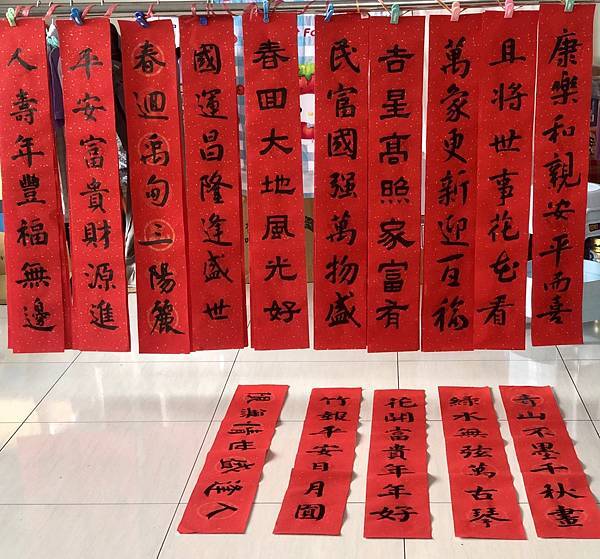 康樂和親安平而喜
且將世事花看
萬象更新迎百福
吉星髙照家富有
民富國强萬物盛
春回大地風光好
國運昌隆逢盛世
春迴禹甸三陽麗
平安富貴財源進
人壽年豐福無邊
山不墨千秋畫
綠水無弦萬古琴
花開富貴年年好
竹報平安日月圓